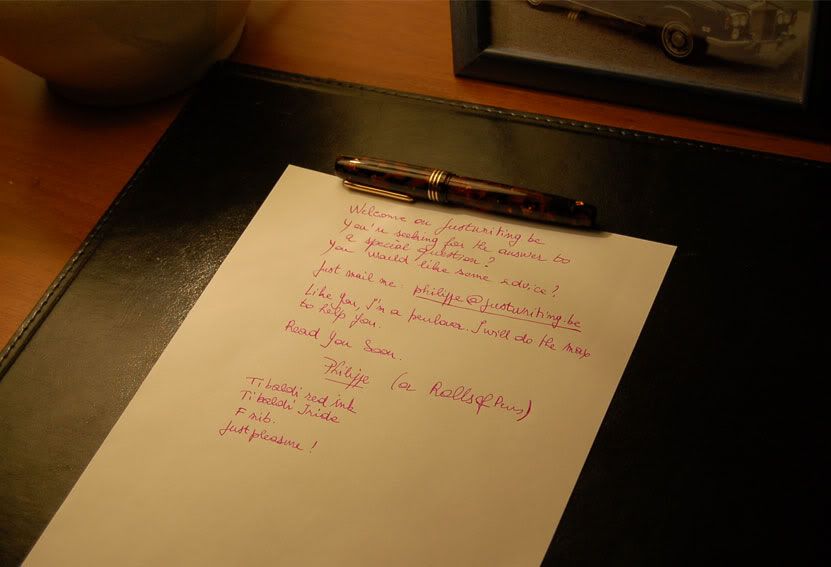 Welcome on Justwriting.be
You're seeking for the answer to
a special question?
You would like some advice?
Just mail me: philippe@justwriting.be
Like you, I'm a penlover. I will do the max
to help you.
Read You Soon.
Philippe (or RollsofPens)
Tibaldi red ink
Tibaldi Iride
F nib.
Just pleasure!